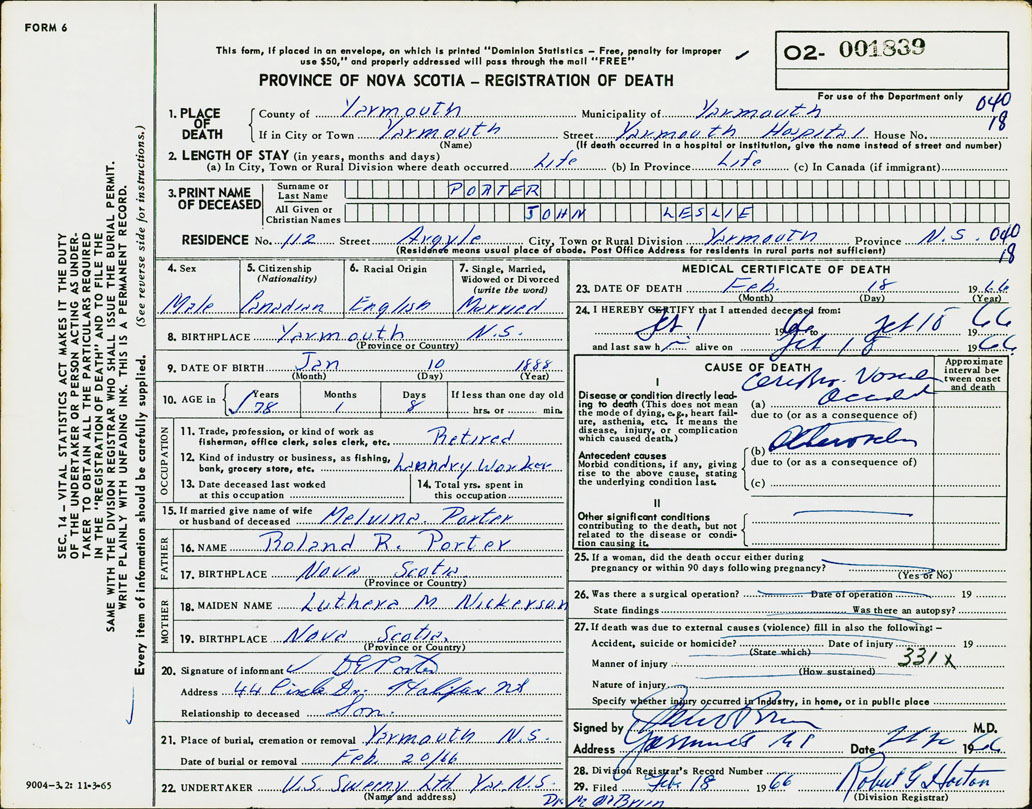 FORM 6
This form, if placed in an envelope, on which is printed "Dominion Statistics – Free, penalty for improper
use $50," and properly addressed will pass through the mail "FREE"
PROVINCE OF NOVA SCOTIA – REGISTRATION OF DEATH
O2- 001839
For use of the Department only
040
18
1. PLACE OF DEATH
County of Yarmouth Municipality of Yarmouth
If in City or Town Yarmouth Street Yarmouth Hospital House No.
(Name) (If death occurred in a hospital or institution, give the name instead of street and number)
2. LENGTH OF STAY (in years, months and days)
(a) In City, Town or Rural Division where death occurred Life (b) In Province Life (c) In Canada (if immigrant)
3. PRINT NAME OF DECEASED
Surname or Last Name PORTER
All Given or Christian Names JOHN LESLIE
RESIDENCE No. 112 Street Argyle City, Town or Rural Division Yarmouth Province N.S. 040
18
(Residence means usual place of abode. Post Office Address for residents in rural parts not sufficient)
4. Sex
Male
5. Citizenship (Nationality)
Canadian
6. Racial Origin
English
7. Single, Married, Widowed or Divorced (write the word)
Married
8. BIRTHPLACE Yarmouth N.S.
(Province or Country)
9. DATE OF BIRTH Jan 10 1888
(Month) (Day) (Year)
10. AGE in
Years 78
Months 1
Days 8
If less than one day old
hrs. or min.
OCCUPATION
11. Trade, profession, or kind of work as fisherman, office clerk, sales clerk, etc. Retired
12. Kind of industry or business, as fishing, bank, grocery store, etc. Laundry Worker
13. Date deceased last worked at this occupation
14. Total yrs. spent in this occupation
15. If married give name of wife or husband of deceased Melvina Porter
FATHER
16. NAME Roland R. Porter
17. BIRTHPLACE Nova Scotia
(Province or Country)
MOTHER
18. MAIDEN NAME Luthera M Nickerson
19. BIRTHPLACE Nova Scotia
(Province or Country)
20. Signature of informant Porter
Address 44 Circle Dr. Halifax NS
Relationship to deceased Son
21. Place of burial, cremation or removal Yarmouth N.S.
Date of burial or removal Feb 20/66
22. UNDERTAKER U.S. Sweeny Ltd Yar N.S.
(Name and address)
MEDICAL CERTIFICATE OF DEATH
23. DATE OF DEATH Feb. 18 1966
(Month) (Day) (Year)
24. I HEREBY CERTIFY that I attended deceased from:
Feb 1 1966 to Feb 18 1966
and last saw h alive on Feb 18 1966
CAUSE OF DEATH
Approximate interval between onset and death
I
Disease or condition directly leading to death (This does not mean the mode of dying, e.g., heart failure, asthenia, etc. It means the disease, injury, or complication which caused death.)
(a)
due to (or as a consequence of)
Antecedent causes
Morbid conditions, if any, giving rise to the above cause, stating the underlying condition last.
(b)
due to (or as a consequence of)
(c)
II
Other significant conditions
contributing to the death, but not related to the disease or condition causing it.
25. If a woman, did the death occur either during pregnancy or within 90 days following pregnancy?
(Yes or No)
26. Was there a surgical operation? Date of operation 19
State findings Was there an autopsy?
27. If death was due to external causes (violence) fill in also the following: –
Accident, suicide or homicide? Date of injury 19
(State which)
331X
Manner of injury
(How sustained)
Nature of injury
Specify whether injury occurred in industry, in home, or in public place
Signed by M.D.
Address Yarmouth NS Date 1966
28. Division Registrar's Record Number
29. Filed Feb 18 1966 Robert G Horton
(Division Registrar)
SEC. 14 – VITAL STATISTICS ACT MAKES IT THE DUTY
OF THE UNDERTAKER OR PERSON ACTING AS UNDER-
TAKER TO OBTAIN ALL THE PARTICULARS REQUIRED
IN THE "REGISTRATION OF DEATH" AND TO FILE THE
SAME WITH THE DIVISION REGISTRAR WHO SHALL ISSUE THE BURIAL PERMIT.
WRITE PLAINLY WITH UNFADING INK. THIS IS A PERMANENT RECORD.
Every item of information should be carefully supplied. (See reverse side for instructions.)
9004-3.2: 11-3-65